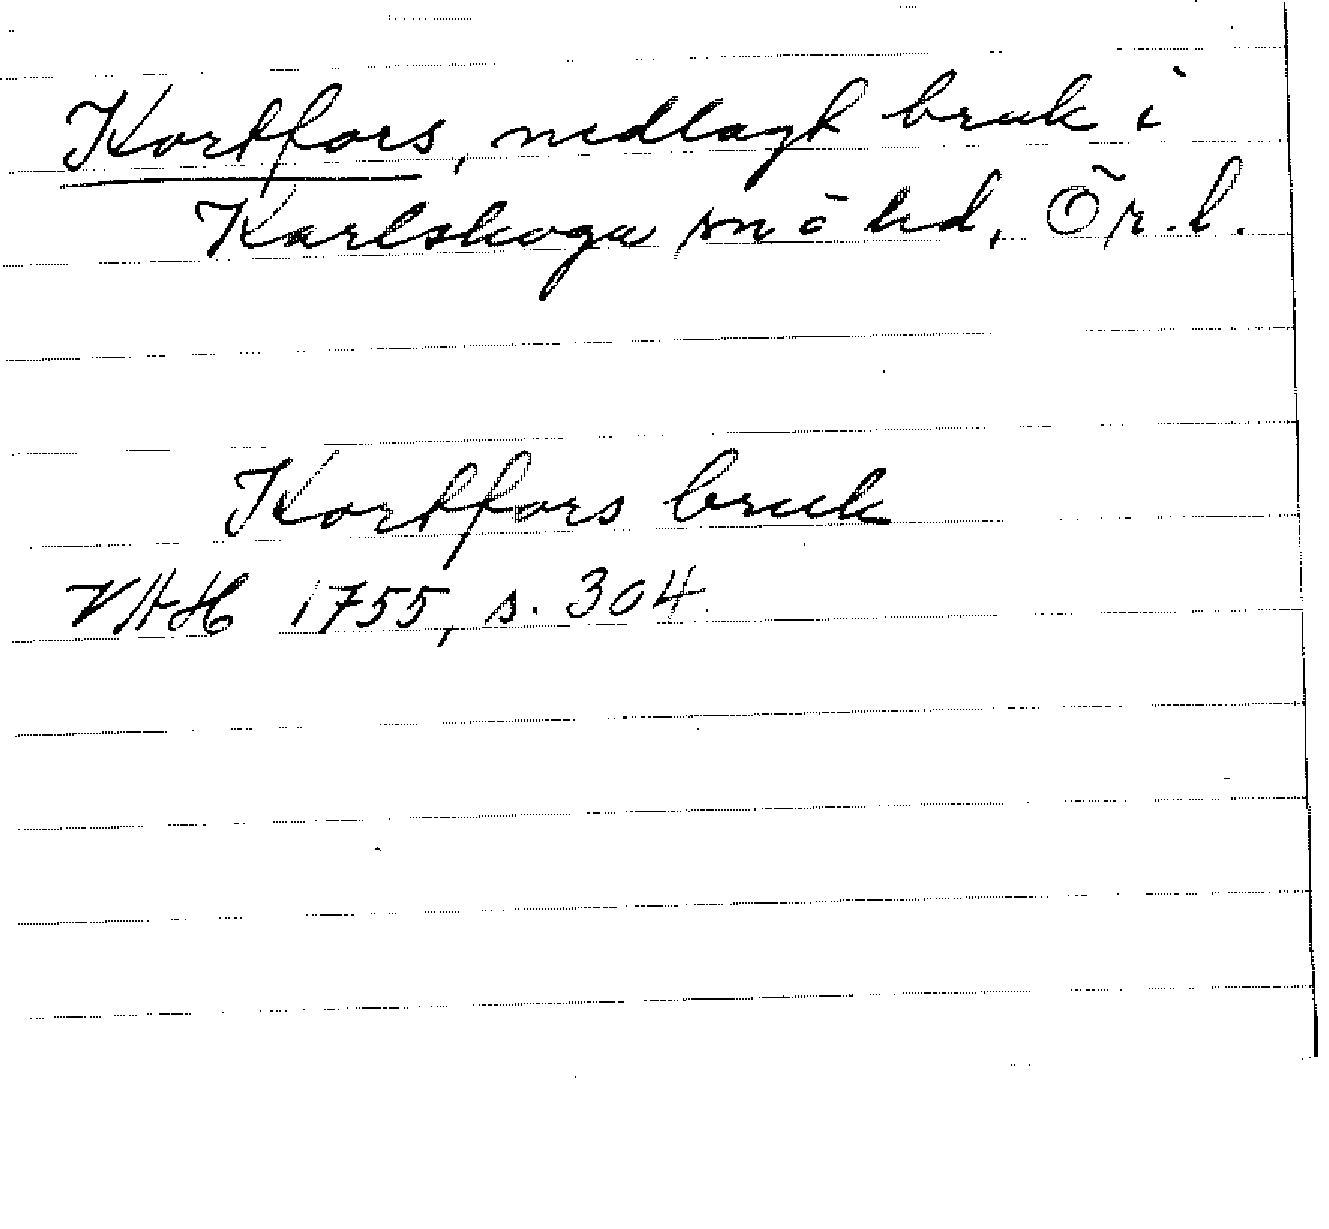 Kortfors, nedlagt bruk i
Karlskoga sn o hd, Ör.l.
Kortfors bruk
VAH 1755, s. 304.